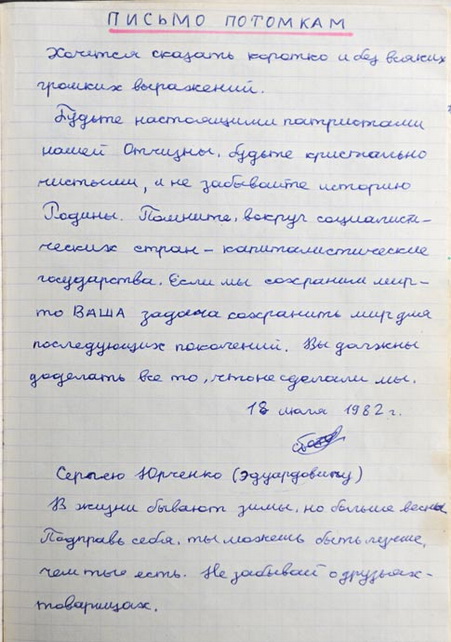 ПИСЬМО ПОТОМКАМ
Хочется сказать коротко и без всяких
громких выражений.
Будьте настоящими патриотами
нашей Отчизны. Будьте кристально
чистыми, и не забывайте историю
Родины. Помните, вокруг социалисти-
ческих стран - капиталистические
государства. Если мы сохраним мир -
то ВАША задача сохранить мир для
последующих поколений. Вы должны
доделать все то, что не сделали мы.
18 июля 1982 г.
Сергею Юрченко (Эдуардовичу)
В жизни бывают зимы, но больше весны
Подправь себя, ты можешь быть лучше,
чем ты есть. Не забывай о друзьях -
товарищах.